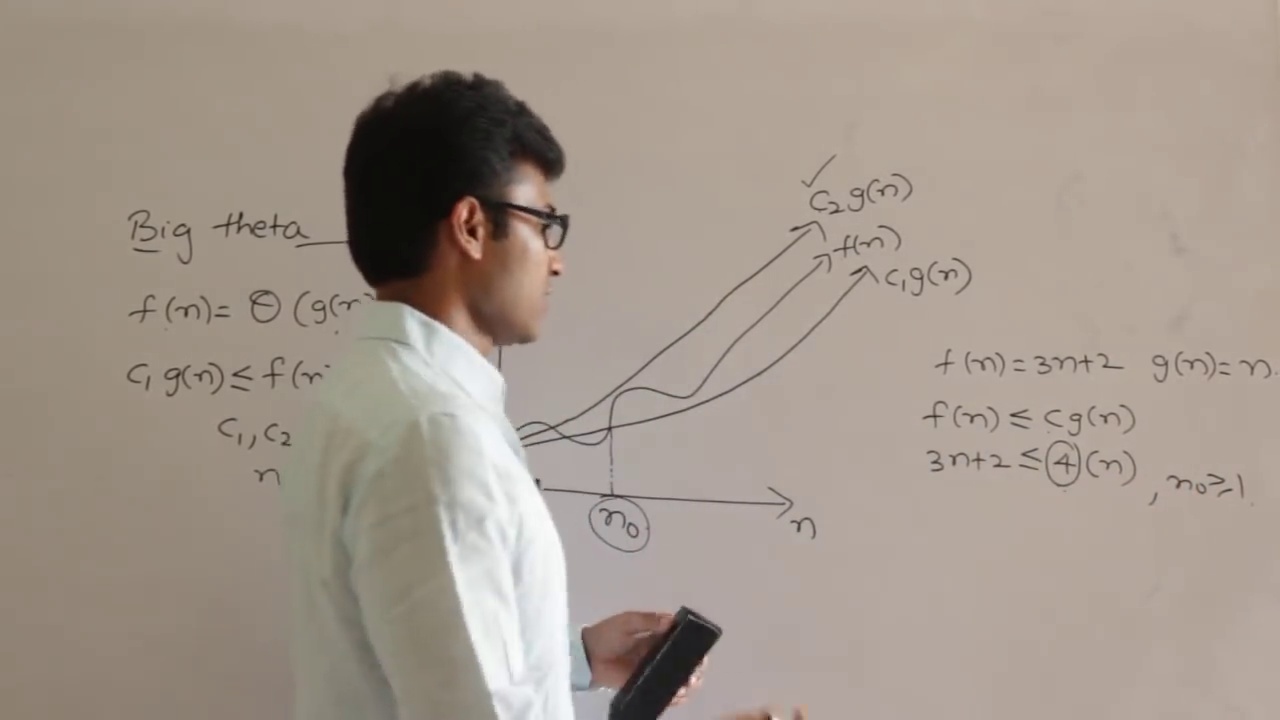 Big theta
f(n) = Θ (g(n
c₁ g(n) ≤ f(n
c₁, c₂
n
c₂ g(n)
f(n)
c₁ g(n)
n₀
n
f(n) = 3n+2 g(n) = n.
f(n) ≤ c g(n)
3n+2 ≤ 4 (n) , n₀ ≥ 1